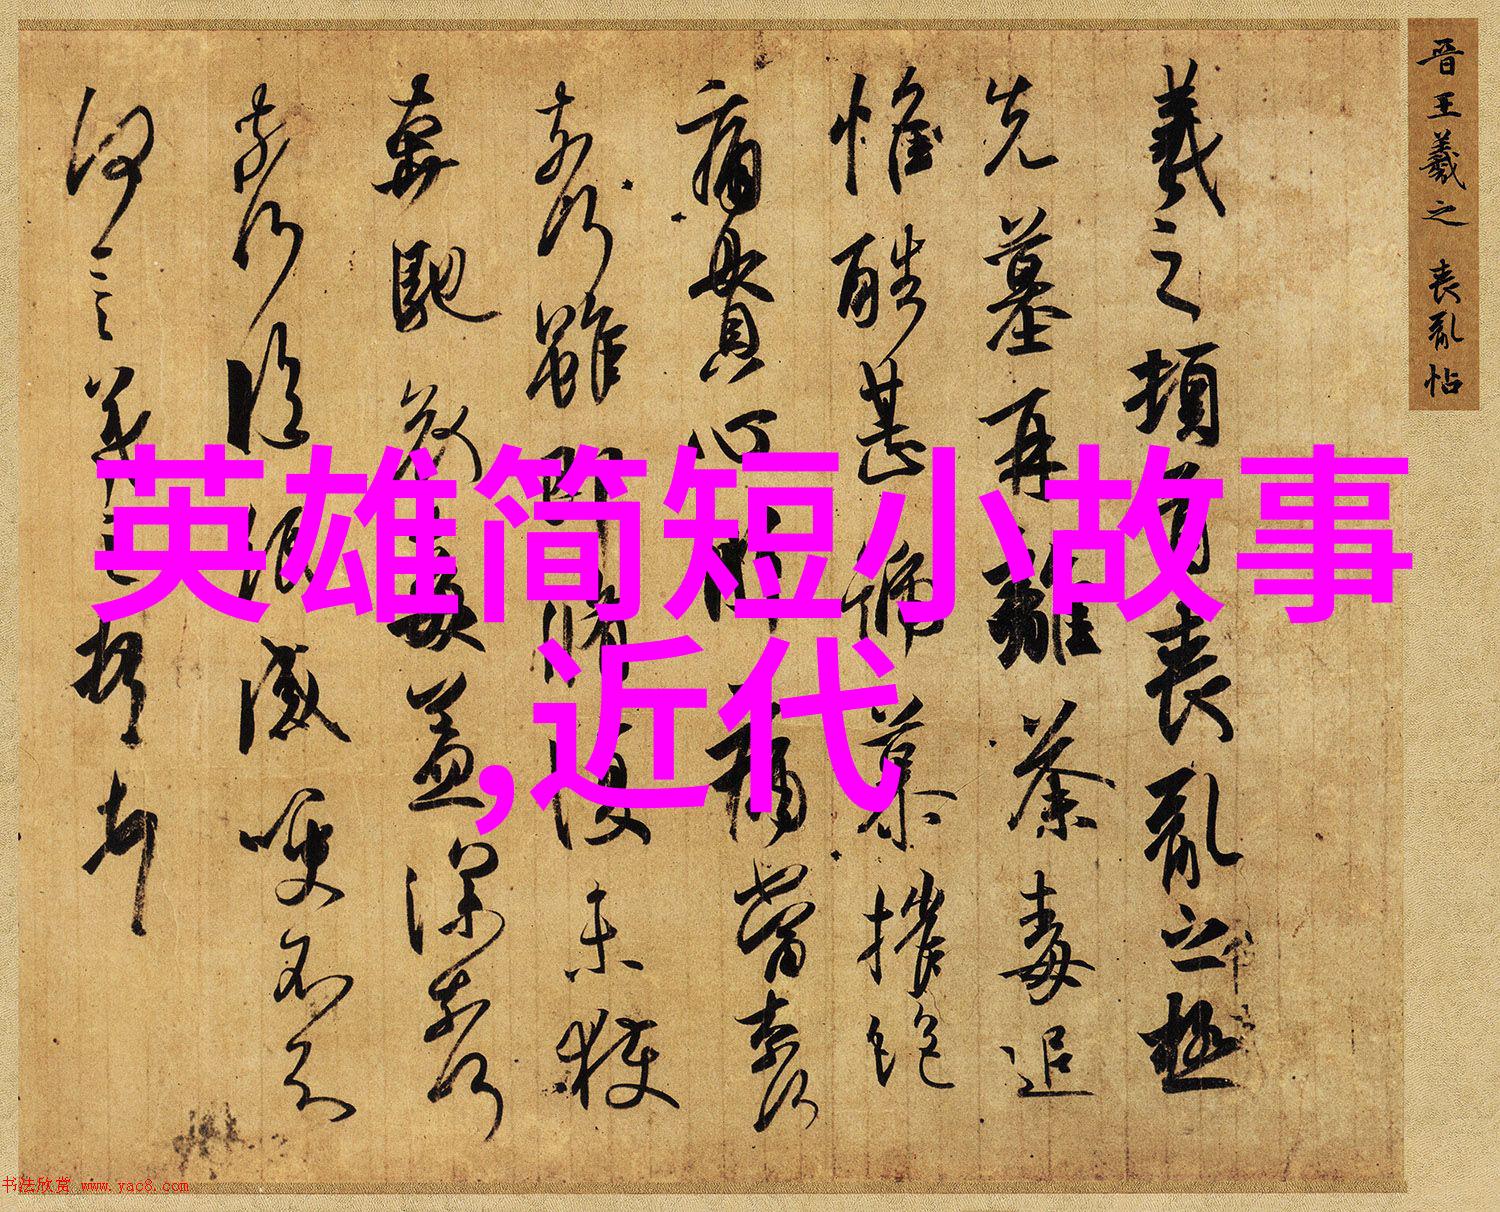 英雄简短小故事
,近代
晋王羲之 喪亂帖
羲之頓首喪亂之極
先墓再離荼毒追
惟酷甚號慕摧絶
痛貫心肝痛當奈何
奈何雖即脩復未獲
奔馳哀毒益深奈何
奈何臨紙感哽不知
何言羲之頓首
书法欣赏 www.yac8.com